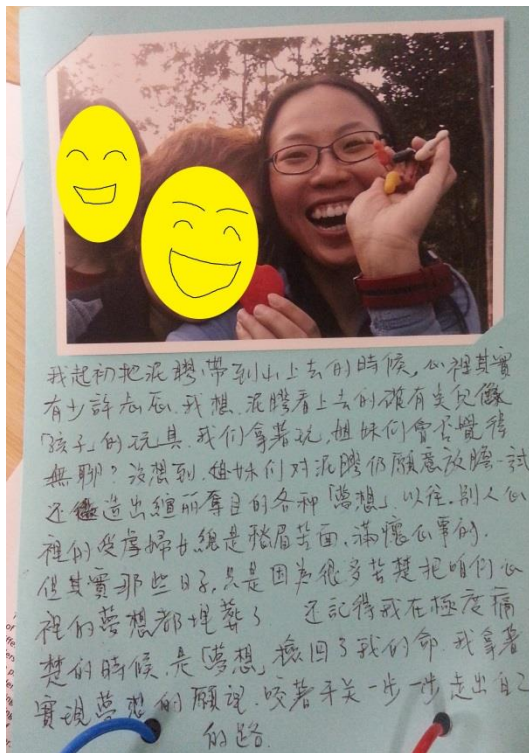 我起初把泥膠帶到山上去的時候，心裡其實
有少許忐忑. 我想, 泥膠看上去的確有尖兒像
「孩子」的玩具. 我们拿著玩, 姐妹们會否覺得
無聊? 沒想到, 姐妹们对泥膠仍願意放膽一試
還造出絢麗奪目的各种「夢想」以往, 別人心
裡的受虐婦女總是愁眉苦面、滿懷心事的.
但其實那些日子, 只是因為很多苦楚把咱们心
裡的夢想都埋葬了 還記得我在極度痛
楚的時候, 是「夢想」撿回了我的命. 我拿著
實現夢想的願望. 咬著牙关一步一步走出自己
的路.